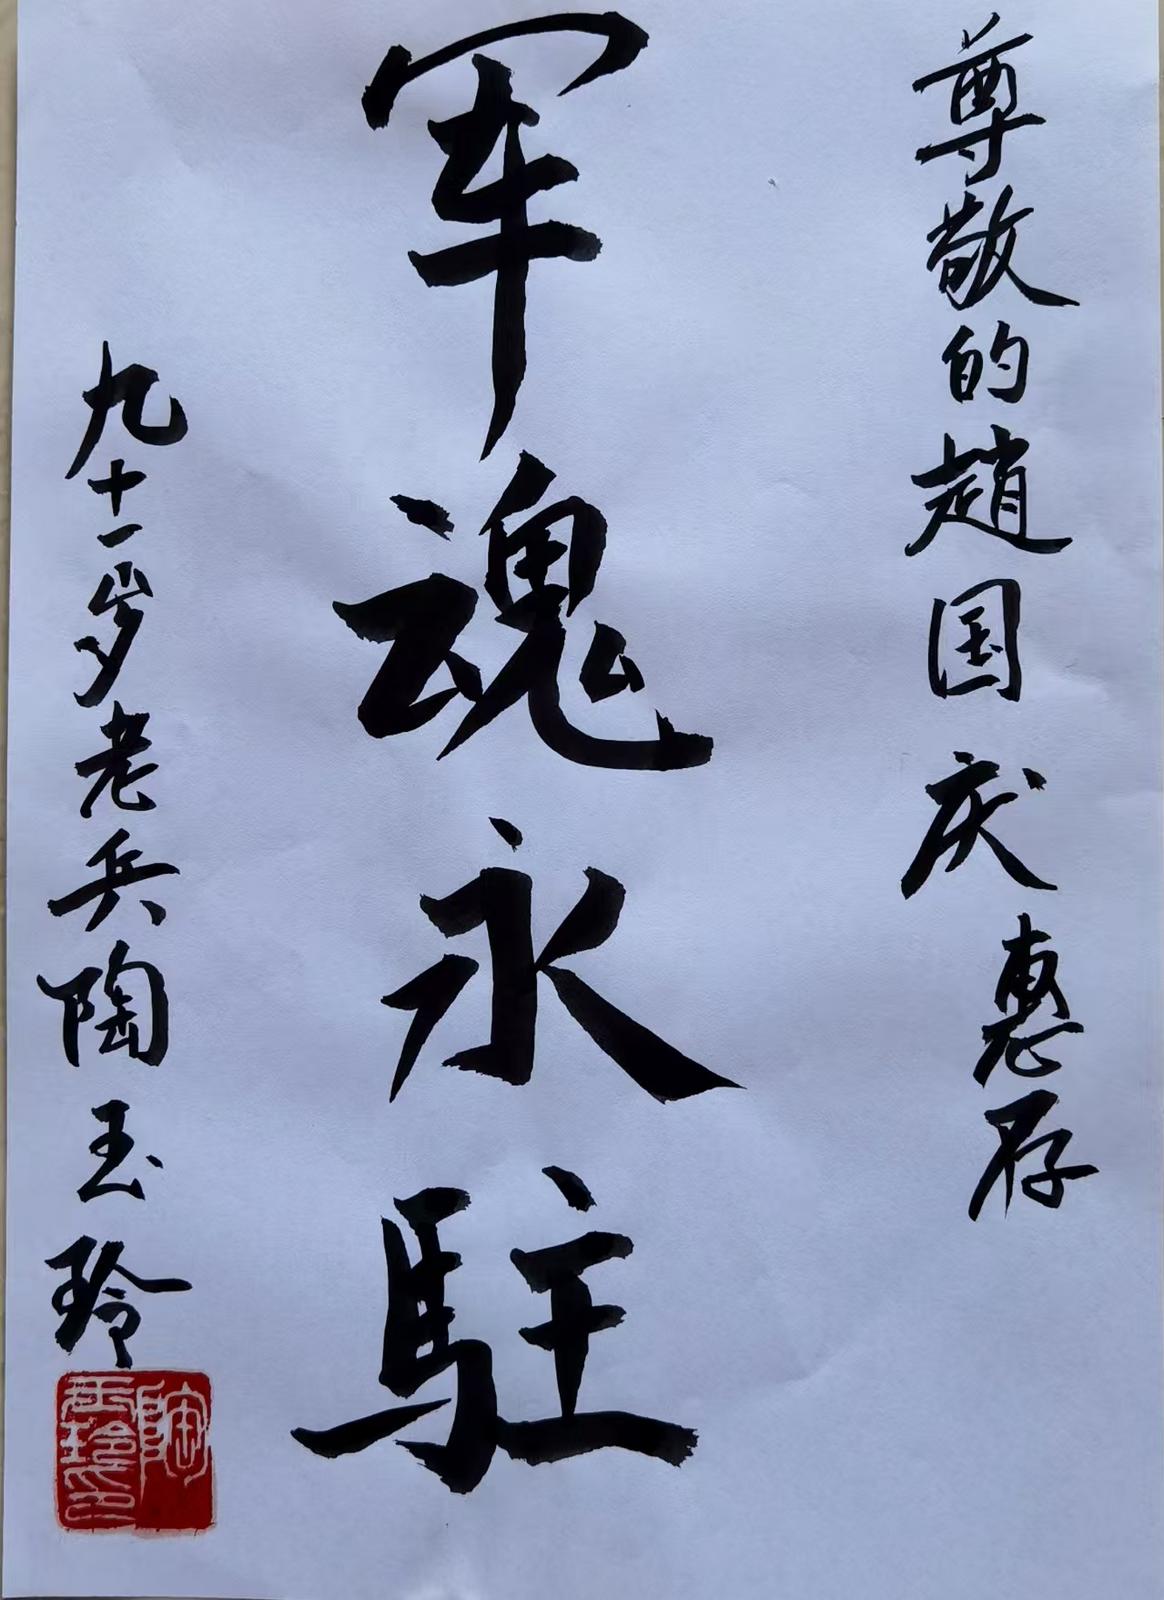 尊敬的趙国庆惠存
军魂永駐
九十一岁老兵陶玉玲
陶玉玲印